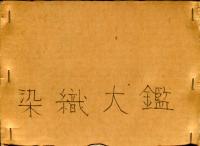 染織大鑑